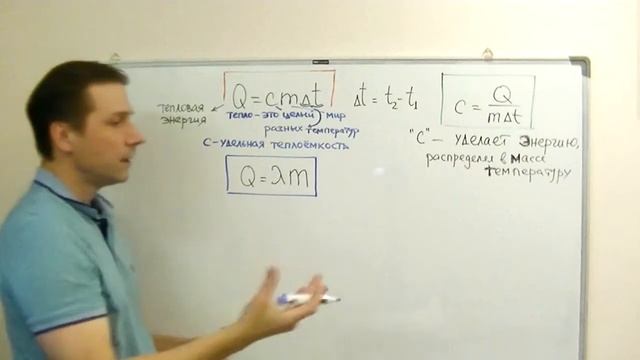 Q = cmΔt
тепловая энергия
тепло - это целый мир
разных температур
c - удельная теплоёмкость
Q = λm
Δt = t₂ - t₁
c = Q / mΔt
"C" — уделает энергию,
распределя в масса
температуру